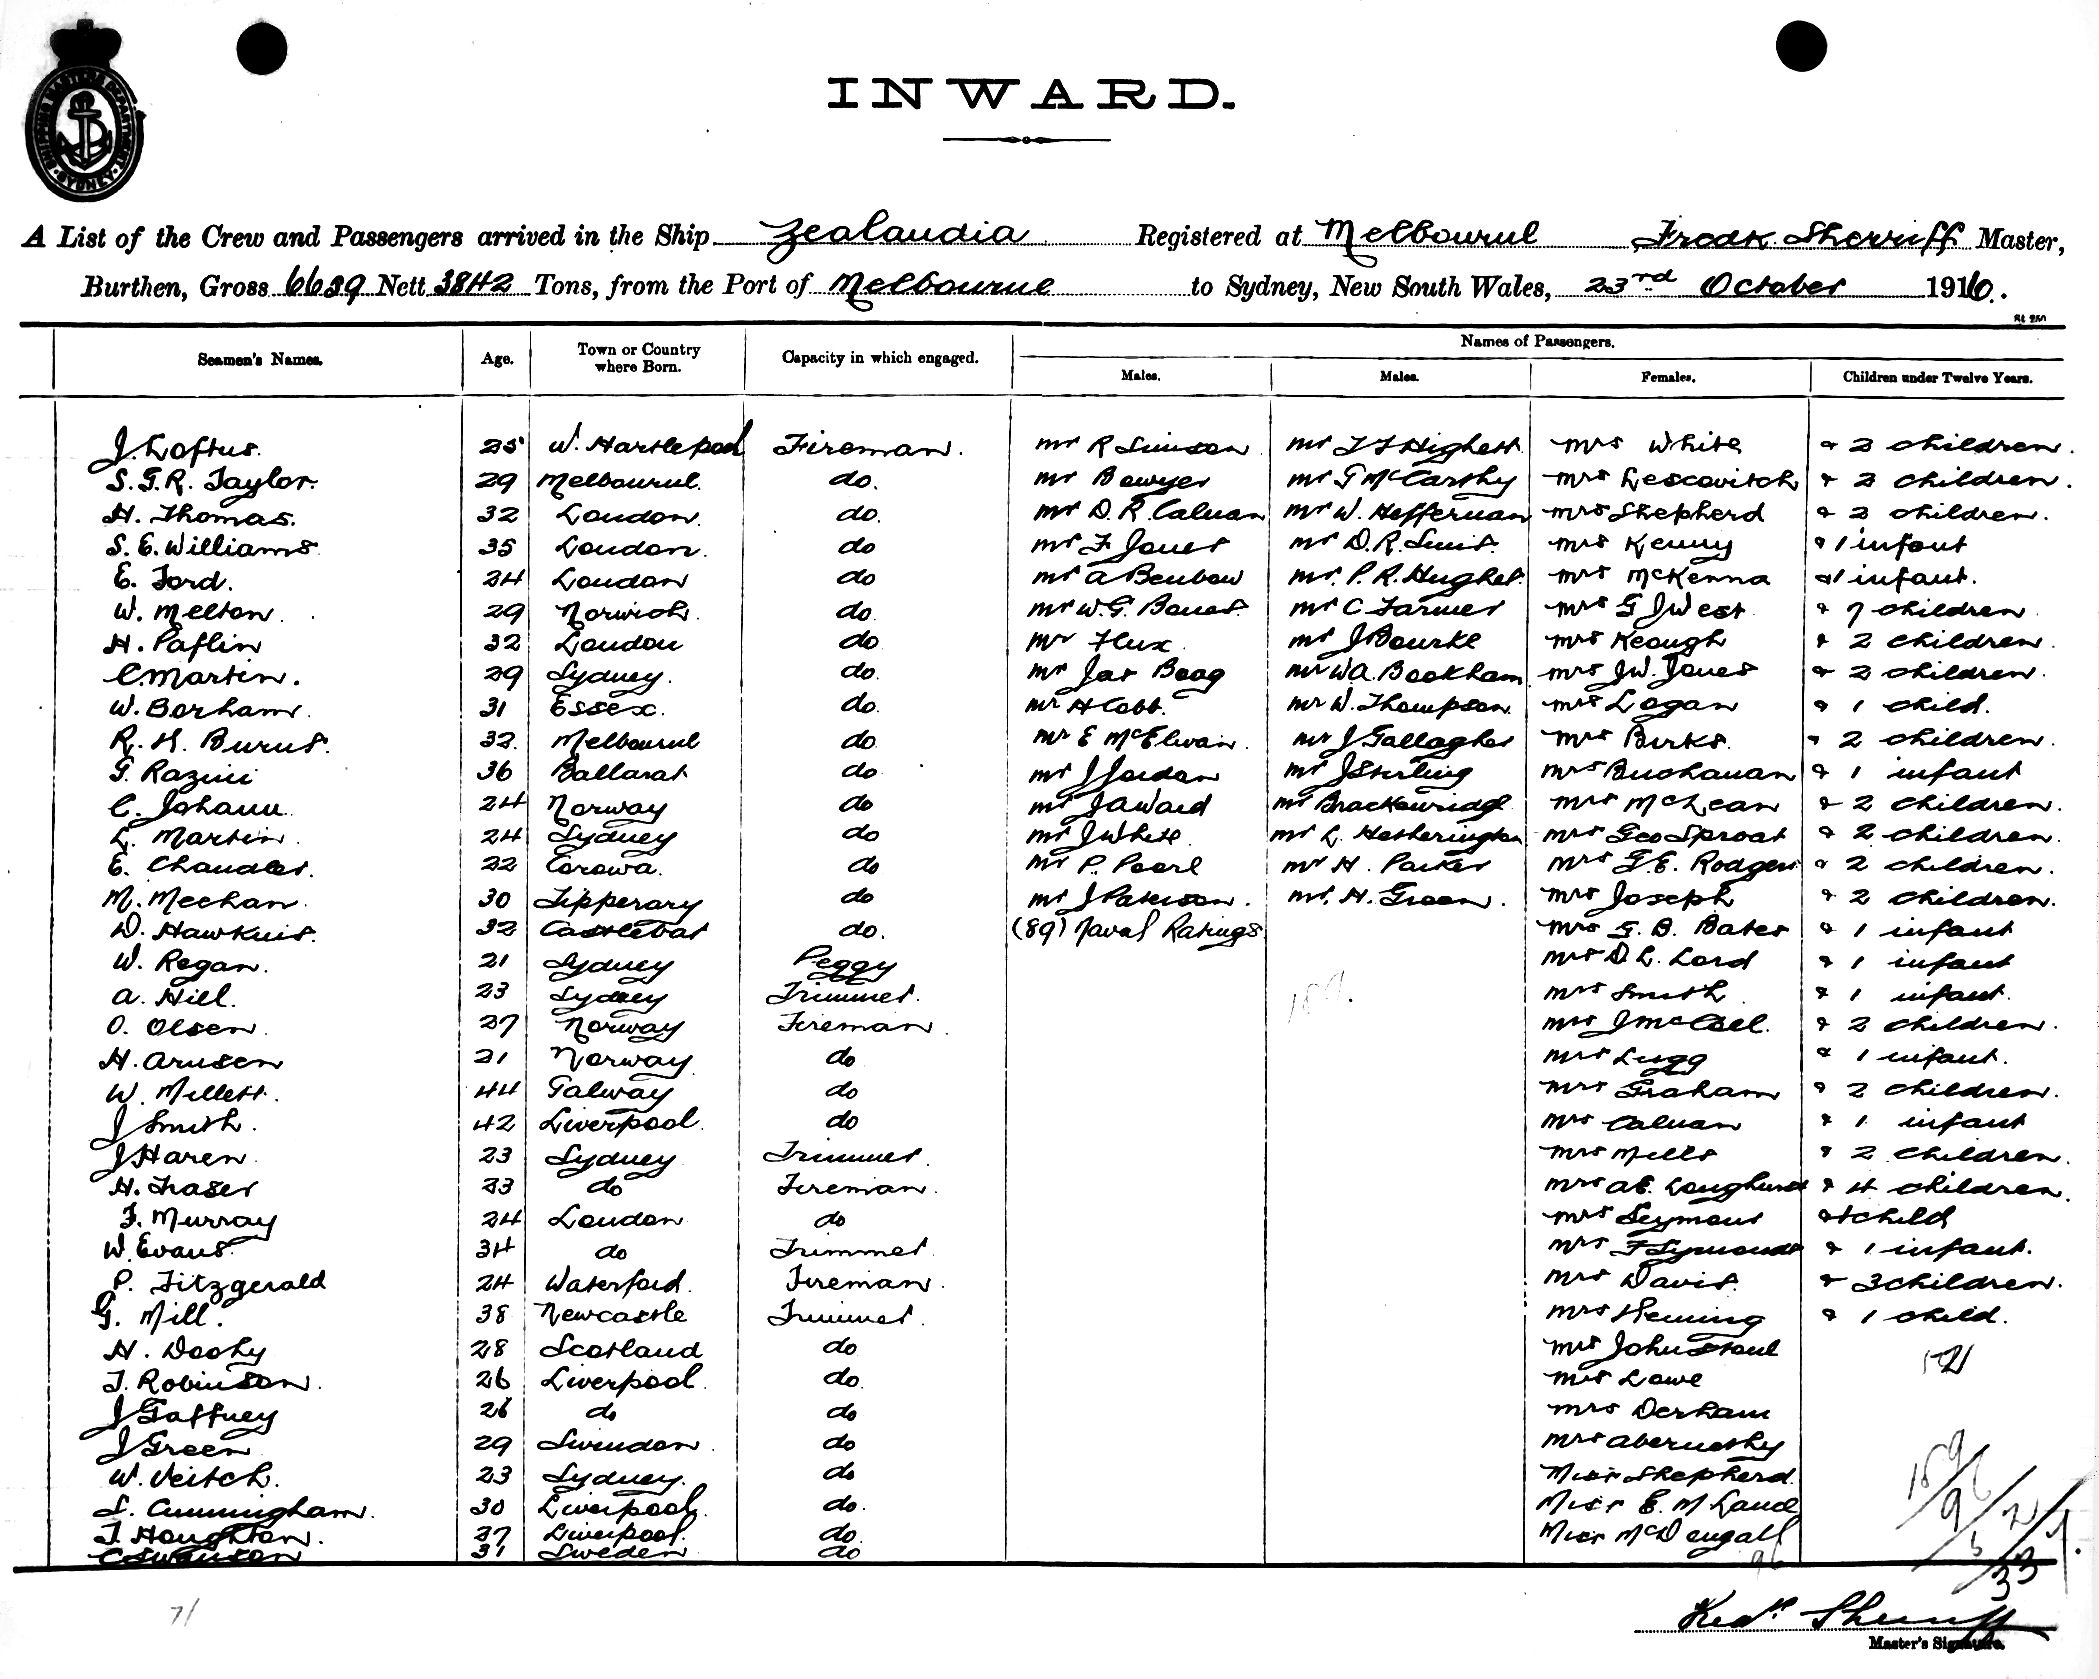 SHIPPING MASTERS DEPARTMENT SYDNEY
INWARD.
A List of the Crew and Passengers arrived in the Ship Zealandia Registered at Melbourne Fredk Sherriff Master,
Burthen, Gross 6639 Nett 3842 Tons, from the Port of Melbourne to Sydney, New South Wales, 23rd October 1916.
Seamen's Names. Age. Town or Country where Born. Capacity in which engaged. Names of Passengers.
Males. Males. Females. Children under Twelve Years.
J. Loftus. 25 W. Hartlepool Fireman. Mr R Simson Mr J F Highett Mrs White & 2 children.
S. G. R. Taylor. 29 Melbourne. do. Mr Bowyer Mr G McCarthy Mrs Lescovitch & 2 children.
H. Thomas. 32 London. do. Mr D. R. Calnan Mr W. Heffernan Mrs Shepherd & 2 children.
S. E. Williams 35 London. do Mr F Jones Mr D. R. Mrs Kenny & 1 infant
E. Ford. 24 London do Mr A Benbow Mr. P. R. Hughes. Mrs McKenna & 1 infant.
W. Melton. 29 Norwich. do. Mr W. G. Mr C Farmer Mrs G J West & 7 children
H. Paflin 32 London do Mr Flux Mr J Bourke Mrs Keough & 2 children.
C. Martin. 29 Sydney. do. Mr Jas Boag Mr W A. Bookham Mrs J W. Jones & 2 children.
W. Borham. 31 Essex. do. Mr H Cobb. Mr W. Thompson Mrs Logan & 1 child.
R. H. Burns. 32. Melbourne do Mr E McElwain. Mr J Gallagher Mrs Birks. & 2 children.
G. Razini 36 Ballarat do Mr J Jordan Mr J Stirling Mrs Buchanan & 1 infant
C. Johann 24 Norway do Mr J A Ward Mr Brackenridge Mrs McLean & 2 children.
L. Martin. 24 Sydney do Mr J White Mr L. Hetherington Mrs Geo Sproat & 2 children.
E. Chandler. 22 Corowa. do Mr P. Pearl Mr H. Parker Mrs G. E. Rodgers & 2 children.
M. Meehan. 30 Tipperary do Mr J Paterson. Mr. H. Green. Mrs Joseph & 2 children.
D. Hawkins. 32 Castlebar do. (89) Naval Ratings Mrs G. B. Bates & 1 infant
W. Regan. 21 Sydney Peggy Mrs D. L. Lord & 1 infant
A. Hill. 23 Sydney Trimmer. 189. Mrs Smith & 1 infant.
O. Olsen. 27 Norway Fireman. Mrs J McCoel. & 2 children.
H. Arnsen 21 Norway do Mrs Lugg & 1 infant.
W. Millett. 44 Galway do Mrs Graham & 2 children.
J Smith. 42 Liverpool. do Mrs Calnan & 1 infant
J Haren 23 Sydney Trimmer. Mrs Mills & 2 children.
H. Fraser 23 do Fireman. Mrs A E. Longhurst & 4 children.
F. Murray 24 London do Mrs Seymour & 1 child
W. Evans. 34 do Trimmer. Mrs F Symonds & 1 infant.
P. Fitzgerald 24 Waterford. Fireman. Mrs Davis. & 3 children.
G. Mill. 38 Newcastle Trimmer. Mrs Fleming & 1 child.
H. Doohy 28 Scotland do Mrs John
T. Robinson. 26 Liverpool. do. Mrs Lowe
J Gaffney 26 do do Mrs Derham
J Green 29 Swindon. do Mrs Abernethy
W. Veitch. 23 Sydney. do Miss Shepherd.
S. Cunningham. 30 Liverpool. do. Miss E. M Laud
T. Houghton. 37 Liverpool. do. Miss McDougall
C Swanson 31 Sweden do
71
Fredk. Sherriff
Master's Signature.